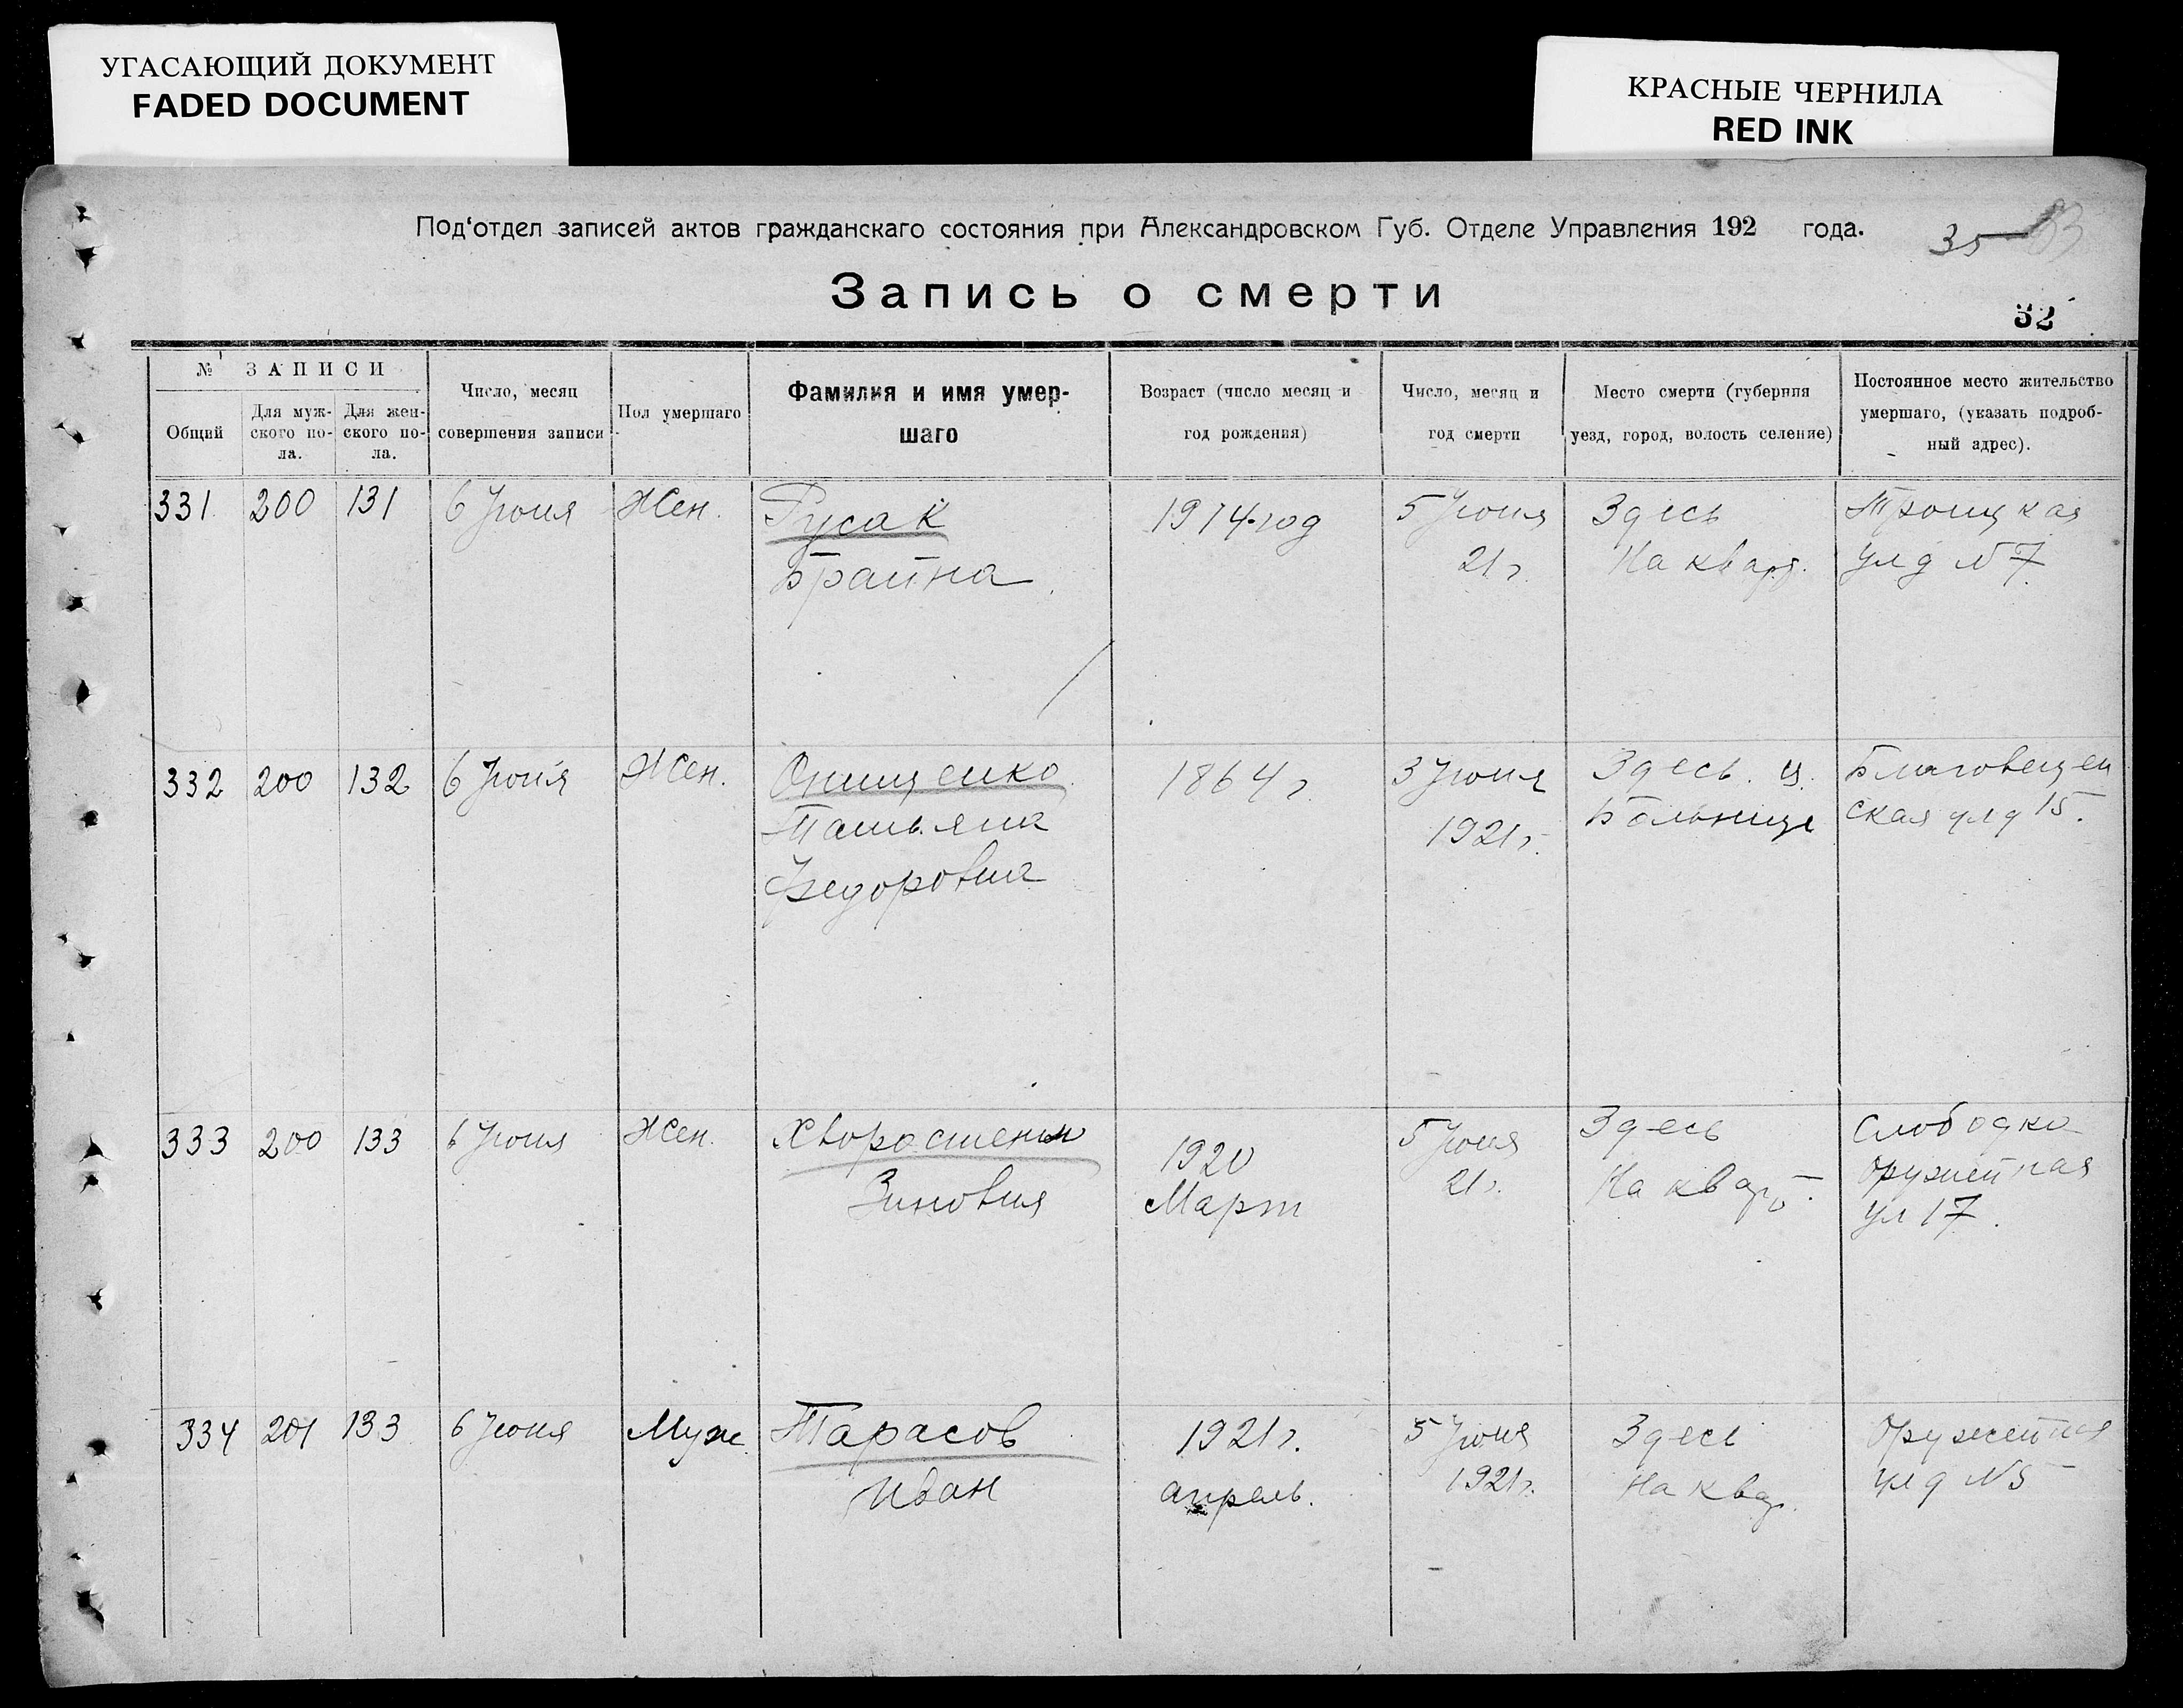 УГАСАЮЩИЙ ДОКУМЕНТ
FADED DOCUMENT
КРАСНЫЕ ЧЕРНИЛА
RED INK
Под‘отдел записей актов гражданскаго состояния при Александровском Губ. Отделе Управления 192 года.
35
Запись о смерти
32
№ ЗАПИСИ
Общий
Для муж-
ского по-
ла.
Для жен-
ского по-
ла.
Число, месяц
совершения записи
Пол умершаго
Фамилия и имя умер-
шаго
Возраст (число месяц и
год рождения)
Число, месяц и
год смерти
Место смерти (губерния
уезд, город, волость селение)
Постоянное место жительство
умершаго, (указать подроб-
ный адрес).
331 200 131 6 Июня Жен. Русак 1914 год 5 Июня Здесь Троицкая
Брайна 21 г. На кварт. ул д № 7
332 200 132 6 Июня Жен. Онищенко 1864 г. 3 Июня Здесь. ц. Благовещен
Татьяна 1921 г. Больнице ская ул д 15.
Федоровна
333 200 133 6 Июня Жен. 1920 5 Июня Здесь Слободка
Зиновия Март 21 г. На кварт. Оружейная
ул 17.
334 201 133 6 Июня Муж Тарасов 1921 г. 5 Июня Здесь Оружейная
Иван апрель. 1921 г. На квар. ул д № 5